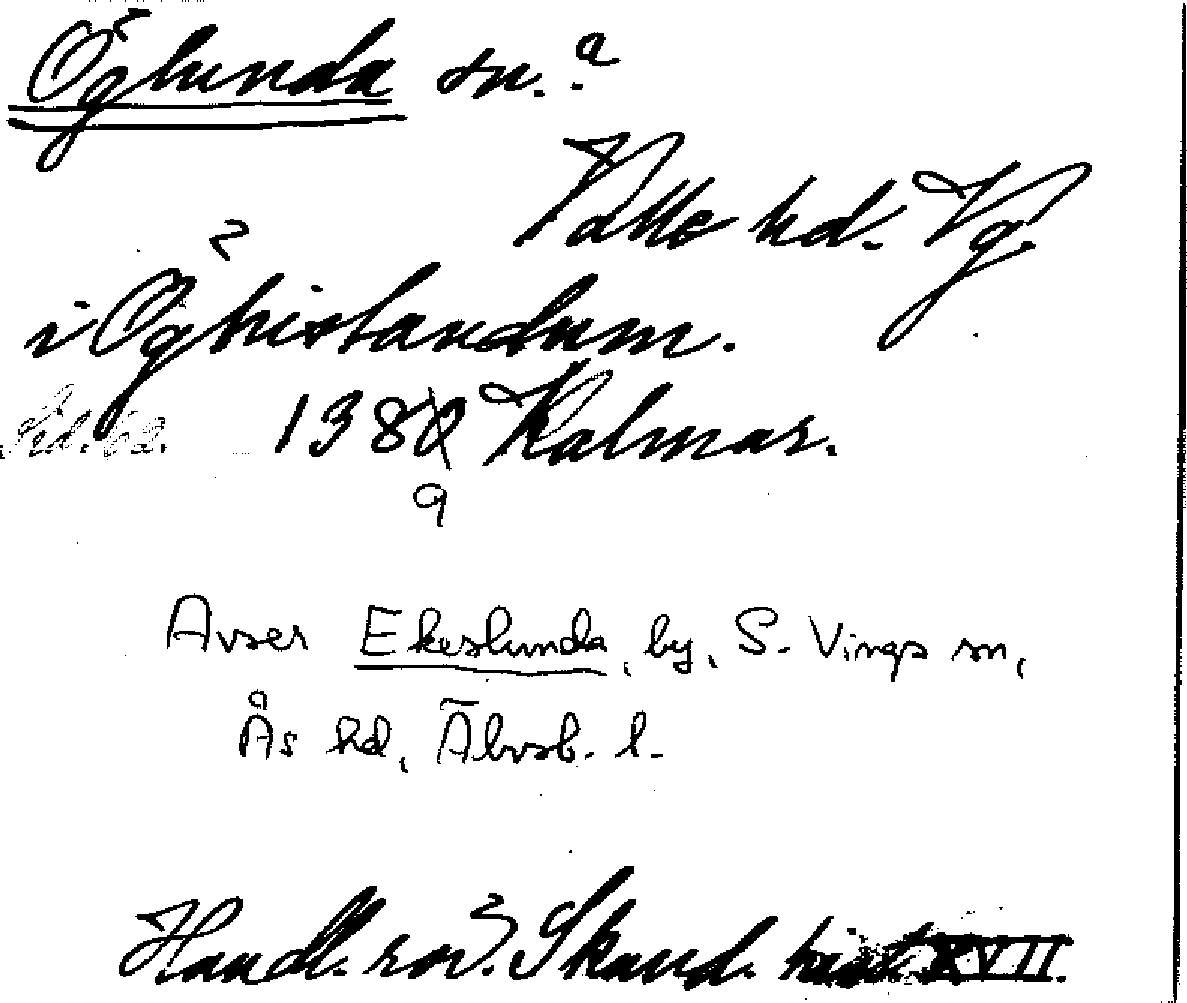 Öglunda sn.
Valle hd. Vg.
i Öghislandum.
Sid. 62. 1380 Kalmar.
9
Avser Ekeslunda, by, S. Vings sn,
Ås hd, Älvsb. l.
Handl. rör. Skand. hist. XVII.